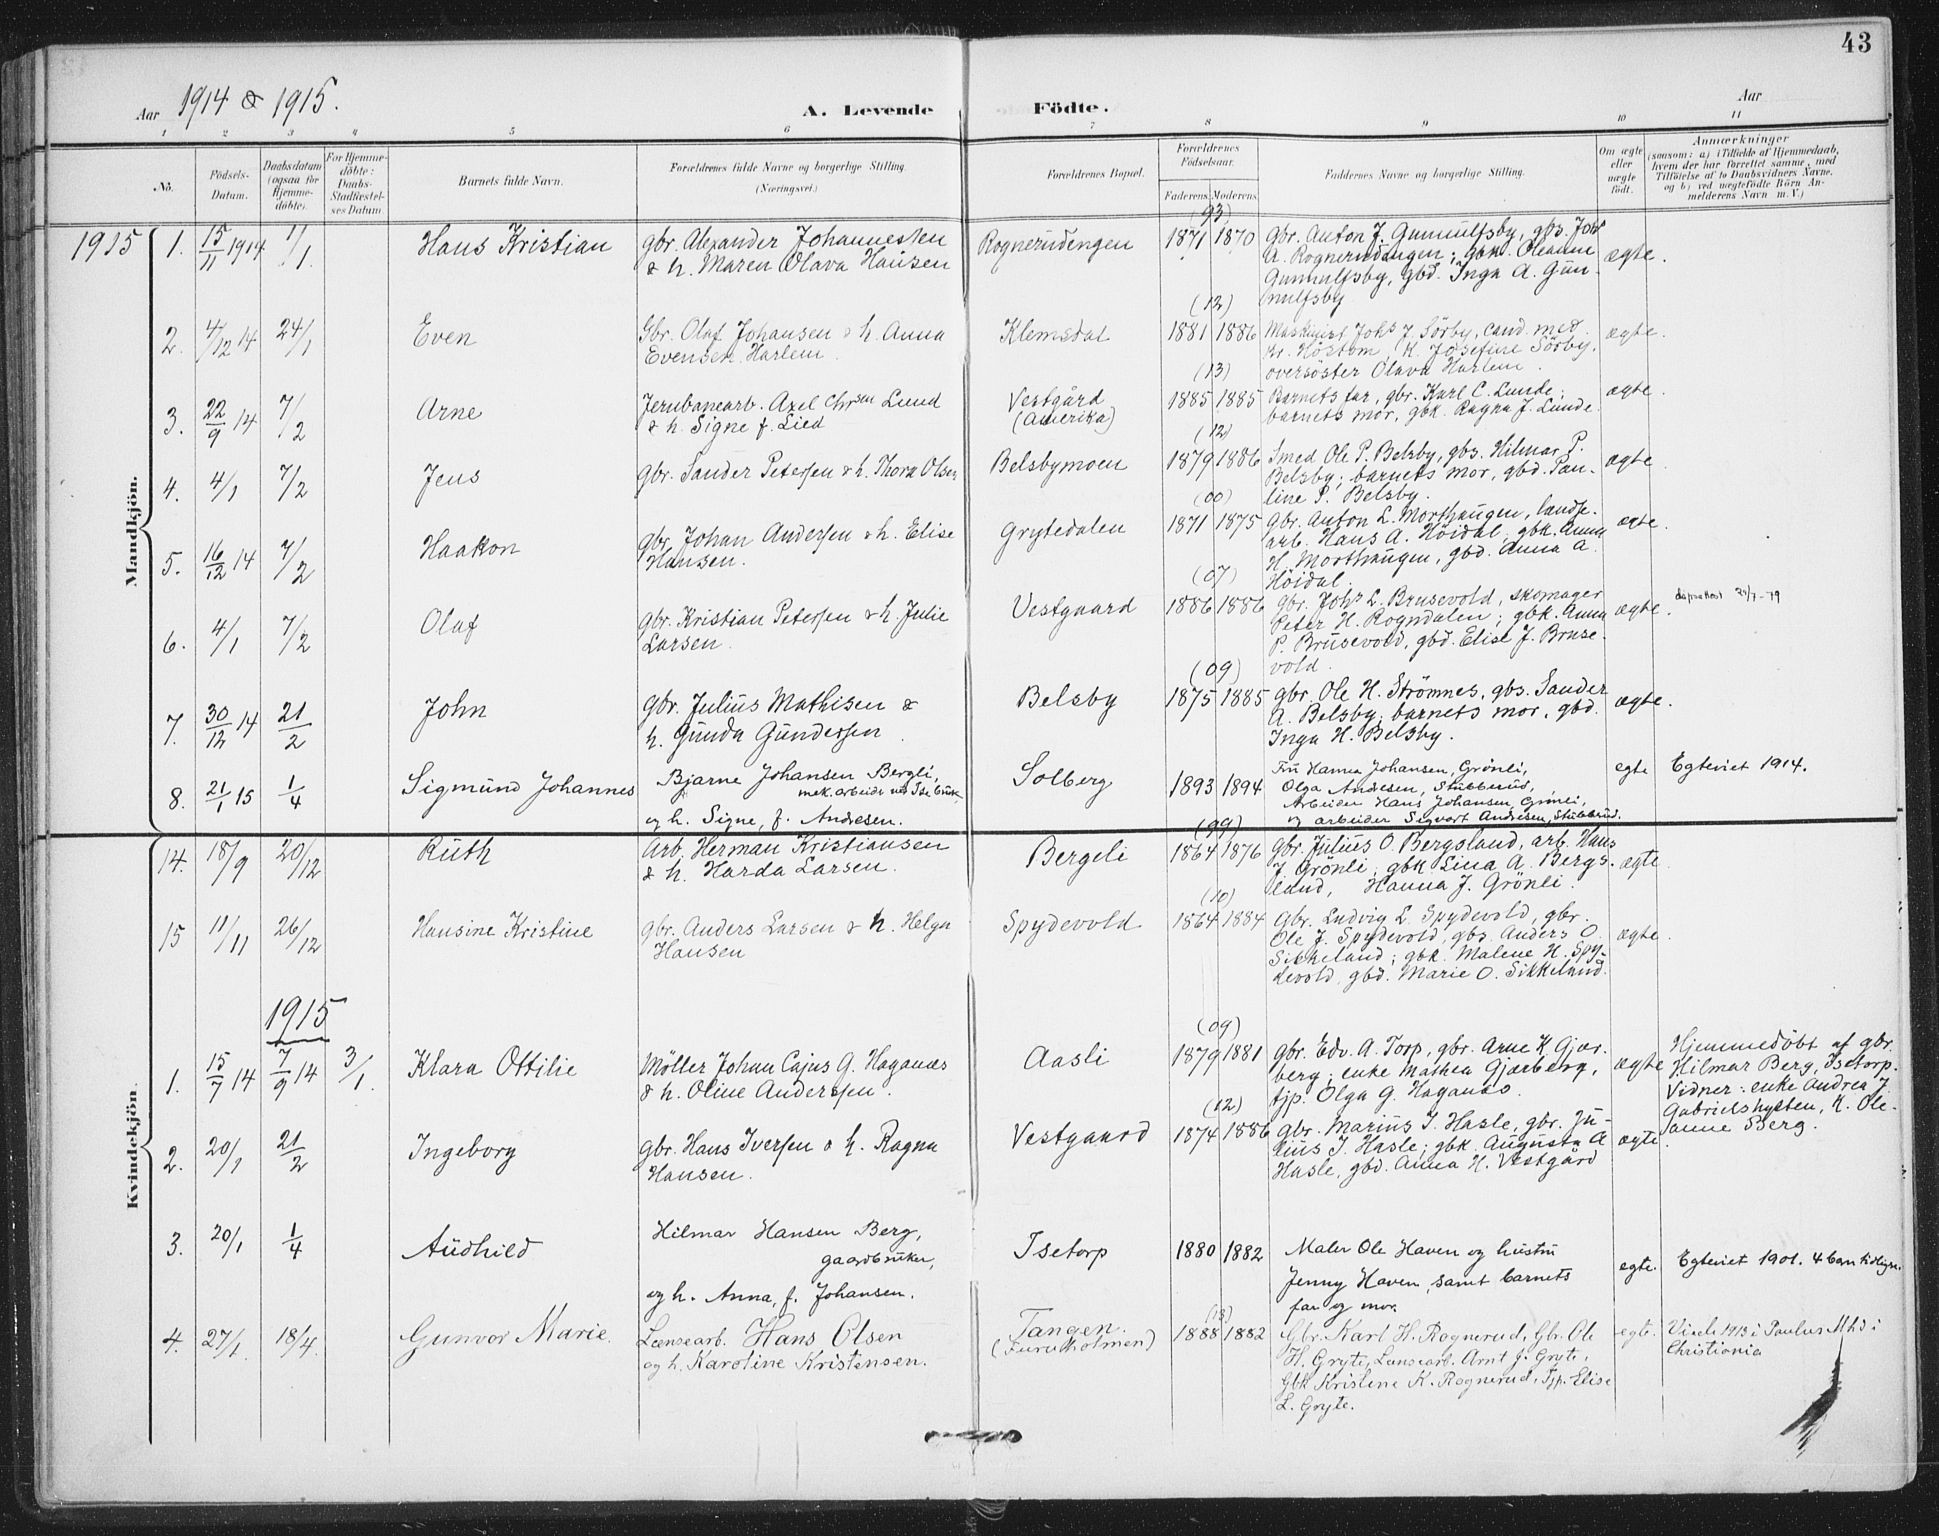 43
Aar 1914 & 1915.
A. Levende Födte.
Aar
1 2 3 4 5 6 7 8 9 10 11
No.
Födsels-Datum.
Daabsdatum (ogsaa for Hjemme-döbte).
For Hjemme-döbte: Daabs-Stadfæstel-ses Datum
Barnets fulde Navn.
Forældrenes fulde Navne og borgerlige Stilling. (Næringsvei.)
Forældrenes Bopæl.
Forældrenes Födselsaar.
Faderens. Moderens.
Faddernes Navne og borgerlige Stilling.
Om ægte eller uægte födt.
Anmærkninger
(saasom: a) i Tilfælde af Hjemmedaab,
hvem der har forrettet samme, med
Tilföielse af to Daabsvidners Navne,
og b) ved uægtefödte Börn An-
melderens Navn m. V.)
Mandkjön.
1915
1. 15/11 1914 1/1 Hans Kristian
gbr. Alexander Johannessen
& h. Maren Olava Hansen
Rognerudengen
(93)
1871 1870
gbr. Anton J. Gunnulfsby, gbs. Johs
A. Rognerudengen; gbk. Oleanna
Gunnulfsby, gbd. Inga A. Gun-
nulfsby
ægte.
2. 4/12 14 24/1 Even
Gbr. Olaf Johansen & h. Anna
Evensen Harlem.
Klemsdal
(12)
1881 1886
Maskinist Johs J. Sörby, cand. med.
Kr. Höstom, h. Josefine Sörby,
oversöster Olava Harlem.
ægte.
3. 22/9 14 7/2 Arne
Jernbanearb. Axel Chrsen Lund
& h. Signe f. Lied
Vestgård
(Amerika)
(13)
1885 1885
Barnets far, gbr. Karl C. Lunde;
barnets mor, gbk. Ragna J. Lunde.
ægte.
4. 4/1 7/2 Jens
gbr. Sander Petersen & h. Thora Olsen
Belsbymoen
(12)
1879 1886
Smed Ole P. Belsby, gbs. Hilmar P.
Belsby; barnets mor, gbd. Pau-
line P. Belsby.
ægte
5. 16/12 14 7/2 Haakon
gbr. Johan Andersen & h. Elise
Hansen.
Grytedalen
(00)
1871 1875
gbr. Anton L. Morthaugen, landp.
arb. Hans A. Höidal; gbk. Anna
H. Morthaugen, gbd. Anna A.
Höidal.
ægte.
6. 4/1 7/2 Olaf
gbr. Kristian Petersen & h. Julie
Larsen.
Vestgaard
(07)
1886 1886
gbr. Johs L. Brusevold, skomager
Peter H. Rogndalen; gbk. Anna
P. Brusevold, gbd. Elise J. Bruse-
vold.
ægte.
dåpsattest 7-79
7. 30/12 14 21/2 John
gbr. Julius Mathisen &
h. Gunda Gundersen.
Belsby
(09)
1875 1885
gbr. Ole H. Strömnes, gbs. Sander
A. Belsby; barnets mor, gbd.
Inga H. Belsby.
ægte.
8. 21/1 15 1/4 Sigmund Johannes
Bjarne Johansen Bergli,
mek. arbeider ved Ise bruk,
og h. Signe, f. Andresen.
Solberg
1893 1894
Fru Hanna Johansen, Grönli,
Olga Andresen, Stubberud,
Arbeider Hans Johansen, Grönli,
og arbeider Sigvart Andresen, Stubberud.
egte
Egteviet 1914.
Kvindekjön
14. 18/9 20/12 Ruth
Arb. Herman Kristiansen
& h. Harda Larsen.
Bergeli
(99)
1864 1876
gbr. Julius O Bergsland, arb. Hans
J. Grönli, gbk Lina A. Bergs-
land, Hanna J. Grönli.
ægte.
15 11/11 26/12 Hansine Kristine
gbr. Anders Larsen & h. Helga
Hansen
Spydevold
(10)
1864 1884
Gbr. Ludvig L. Spydevold, gbr.
Ole J. Spydevold, gbs. Anders O.
Sikkeland; gbk. Malene H. Spy-
devold, gbd. Marie O. Sikkeland.
ægte.
1915
1. 15/7 14 7/9 14 3/1. Klara Ottilie
Möller Johan Cajus G. Haganæs
& h. Oline Andersen.
Aasli
(09)
1879 1881
gbr. Edv. A. Torp, gbr. Arne K Gjær-
berg; enke Mathea Gjærberg,
tjp. Olga G. Haganæs.
ægte
Hjemmedöbt af gbr.
Hilmar Berg, Isetorp.
Vidner: enke Andrea J.
Gabrielshytten, K. Ole-
anne Berg.
2. 20/1 21/2 Ingeborg
gbr. Hans Iversen & h. Ragna
Hansen.
Vestgaard
(12)
1874 1886
gbr. Marius I. Hasle, gbr. Ju-
lius I. Hasle; gbk. Augusta A
Hasle, gbd. Anna H. Vestgård
ægte.
3. 20/1 1/4 Audhild
Hilmar Hansen Berg,
gaardbruker,
og h. Anna, f. Johansen.
Isetorp
1880 1882
Maler Ole Haven og hustru
Jenny Haven, samt barnets
far og mor.
egte.
Egteviet 1901. 4 barn tidligere.
4. 27/1. 18/4. Gunvor Marie.
Lænsearb. Hans Olsen
og h. Karoline Kristensen.
Tangen.
(Furuholmen)
(13)
1888 1882
Gbr. Karl H. Rognerud, Gbr. Ole
H. Gryte, Lænsearb. Arnt J. Gryte,
Gbk Kristene K. Rognerud, Tjp. Elise
L. Gryte.
egte.
Viede 1913 i Paulus Mhd i
Christiania